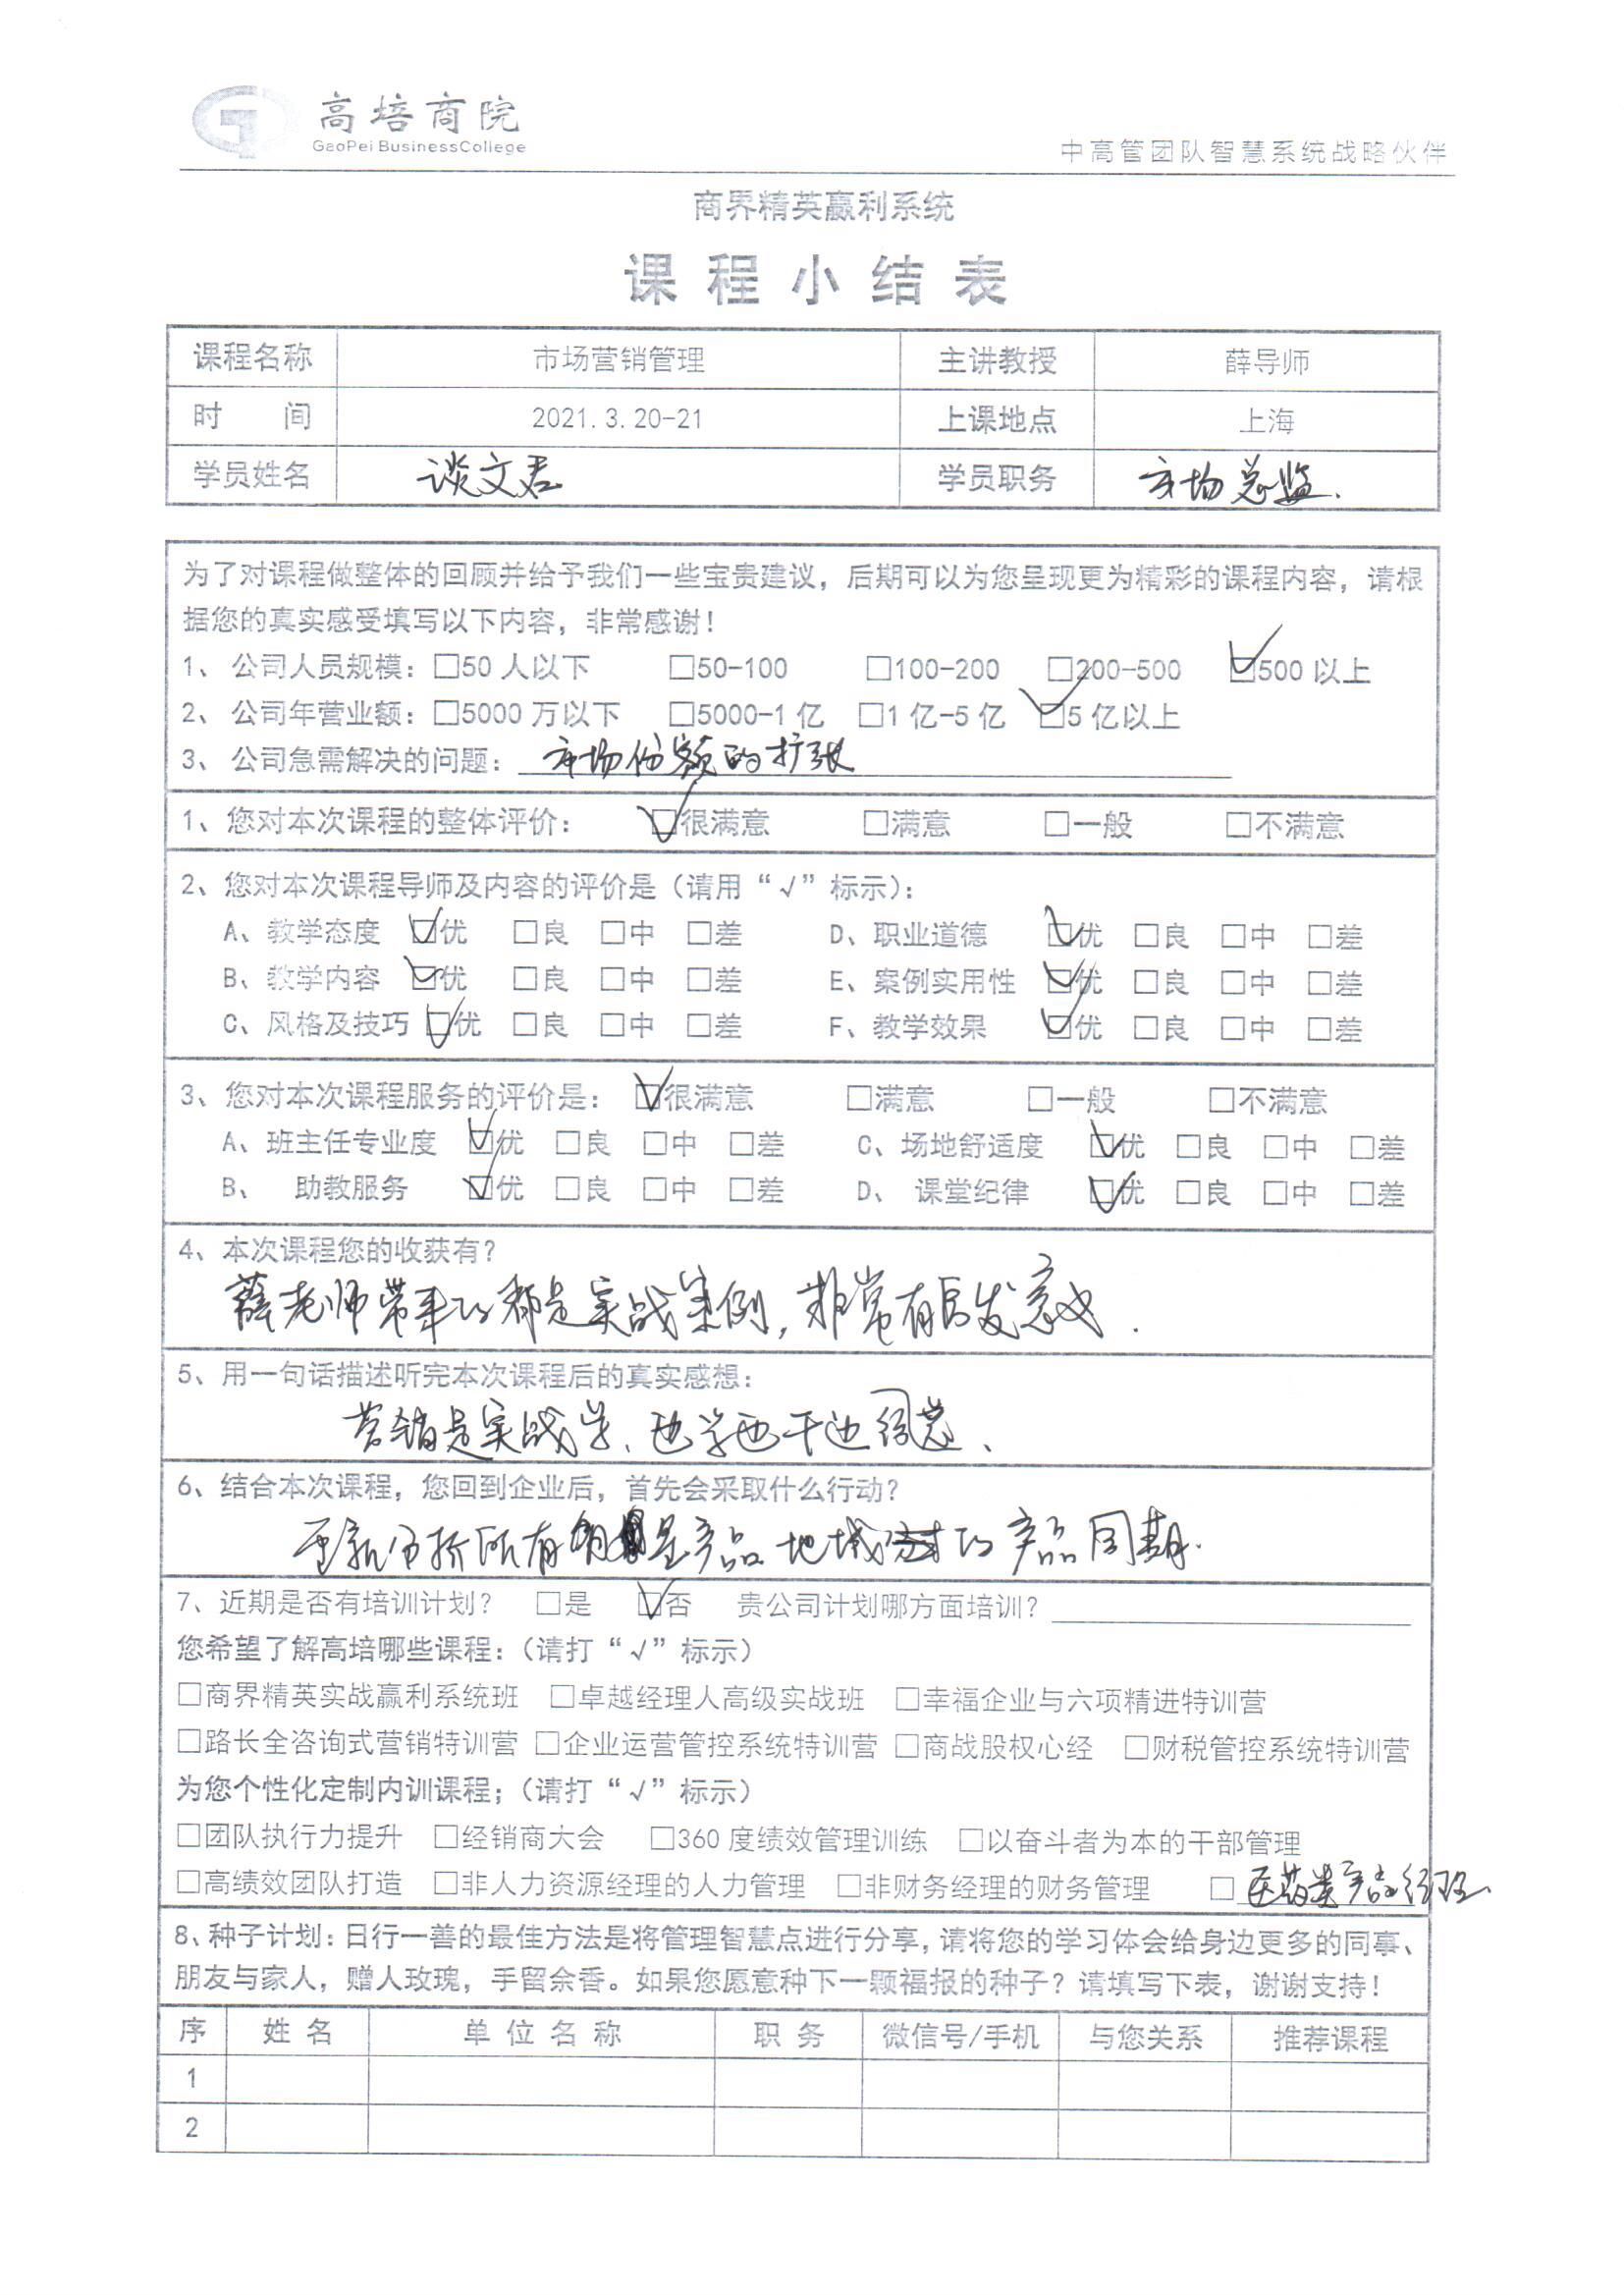 高培商院
GaoPei BusinessCollege
中高管团队智慧系统战略伙伴
商界精英赢利系统
课程小结表
课程名称 市场营销管理 主讲教授 薛导师
时 间 2021.3.20-21 上课地点 上海
学员姓名 谈文君 学员职务 市场总监.
为了对课程做整体的回顾并给予我们一些宝贵建议，后期可以为您呈现更为精彩的课程内容，请根
据您的真实感受填写以下内容，非常感谢！
1、 公司人员规模：□50 人以下 □50-100 □100-200 □200-500 ☑500 以上
2、 公司年营业额：□5000 万以下 □5000-1 亿 □1 亿-5 亿 ☑5 亿以上
3、 公司急需解决的问题：市场份额的扩张
1、您对本次课程的整体评价： ☑很满意 □满意 □一般 □不满意
2、您对本次课程导师及内容的评价是（请用“√”标示）：
A、教学态度 ☑优 □良 □中 □差 D、职业道德 ☑优 □良 □中 □差
B、教学内容 ☑优 □良 □中 □差 E、案例实用性 ☑优 □良 □中 □差
C、风格及技巧 ☑优 □良 □中 □差 F、教学效果 ☑优 □良 □中 □差
3、您对本次课程服务的评价是： ☑很满意 □满意 □一般 □不满意
A、班主任专业度 ☑优 □良 □中 □差 C、场地舒适度 ☑优 □良 □中 □差
B、 助教服务 ☑优 □良 □中 □差 D、 课堂纪律 ☑优 □良 □中 □差
4、本次课程您的收获有？
薛老师带来的都是实战案例，非常有启发意义.
5、用一句话描述听完本次课程后的真实感想：
营销是实战学、边学边干边
6、结合本次课程，您回到企业后，首先会采取什么行动？
所有 产品 地域 的产品周期.
7、近期是否有培训计划？ □是 ☑否 贵公司计划哪方面培训？
您希望了解高培哪些课程：（请打“√”标示）
□商界精英实战赢利系统班 □卓越经理人高级实战班 □幸福企业与六项精进特训营
□路长全咨询式营销特训营 □企业运营管控系统特训营 □商战股权心经 □财税管控系统特训营
为您个性化定制内训课程；（请打“√”标示）
□团队执行力提升 □经销商大会 □360 度绩效管理训练 □以奋斗者为本的干部管理
□高绩效团队打造 □非人力资源经理的人力管理 □非财务经理的财务管理 □ 医药类产品经理
8、种子计划：日行一善的最佳方法是将管理智慧点进行分享，请将您的学习体会给身边更多的同事、
朋友与家人，赠人玫瑰，手留余香。如果您愿意种下一颗福报的种子？请填写下表，谢谢支持！
序 姓 名 单 位 名 称 职 务 微信号/手机 与您关系 推荐课程
1
2